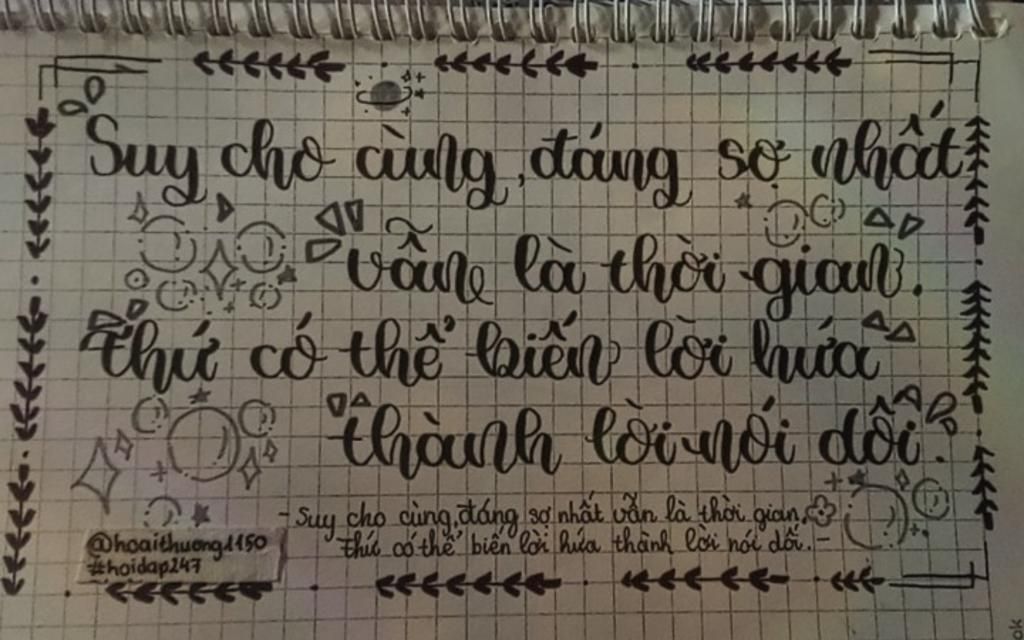 Suy cho cùng, đáng sợ nhất
vẫn là thời gian.
Thứ có thể biến lời hứa
thành lời nói dối.
- Suy cho cùng, đáng sợ nhất vẫn là thời gian,
thứ có thể biến lời hứa thành lời nói dối. -
@hoaithuong1150
#hoidap247